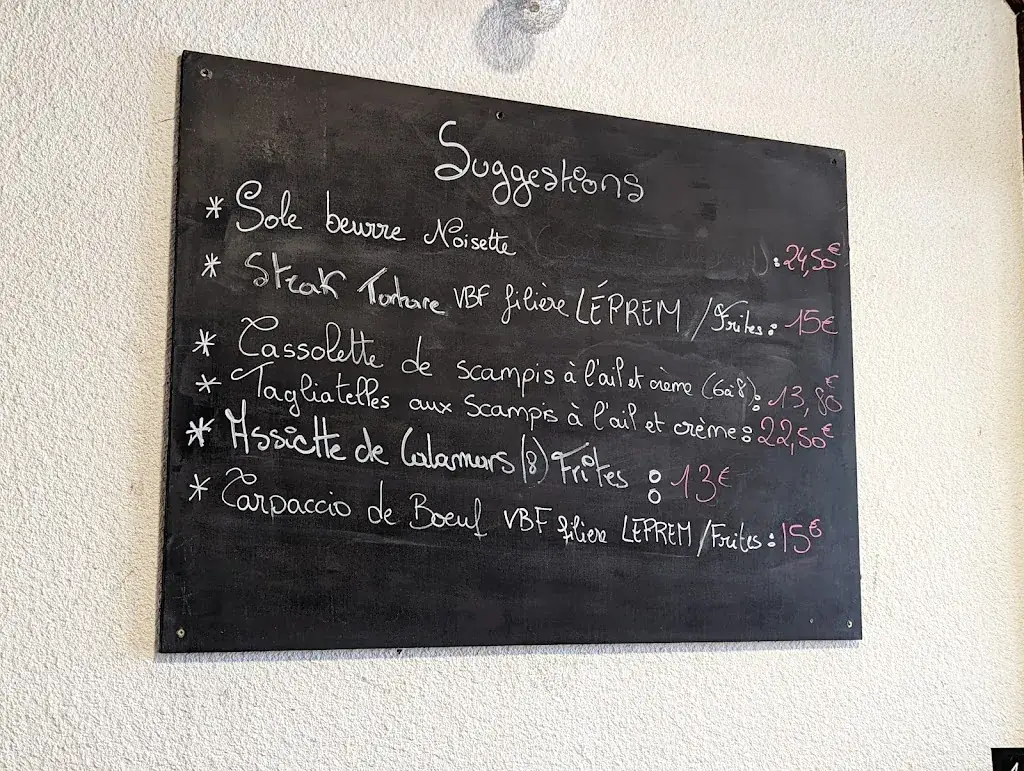 Suggestions
* Sole beurre Noisette : 24,50€
* Steak Tartare VBF filière LÉPREM / Frites : 15€
* Cassolette de scampis à l'ail et crème (6 à 8) : 13,80€
* Tagliatelles aux scampis à l'ail et crème : 22,50€
* Assiette de Calamars (8) Frites : 13€
* Carpaccio de Boeuf VBF filière LEPREM / Frites : 15€